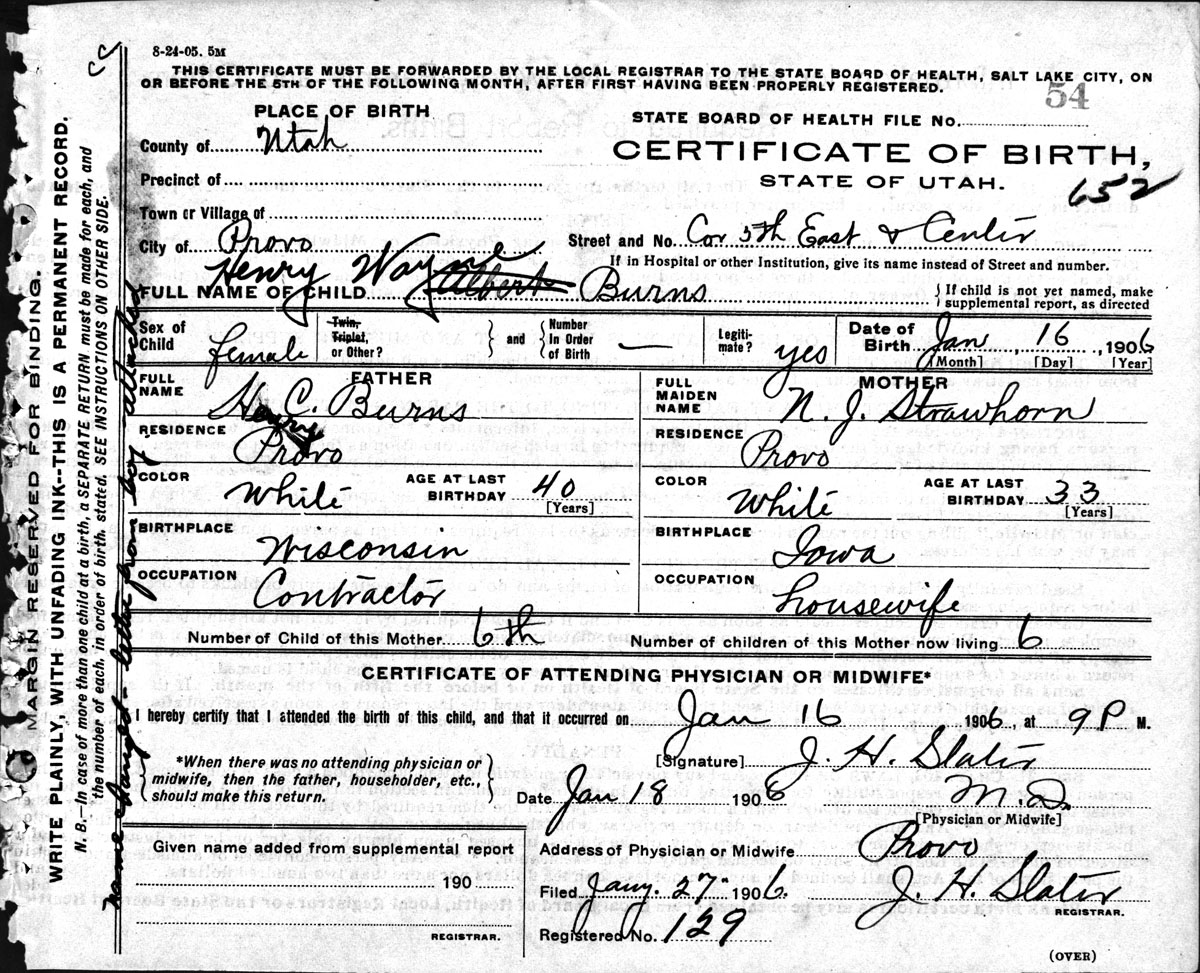 8-24-05. 5M
THIS CERTIFICATE MUST BE FORWARDED BY THE LOCAL REGISTRAR TO THE STATE BOARD OF HEALTH, SALT LAKE CITY, ON
OR BEFORE THE 5TH OF THE FOLLOWING MONTH, AFTER FIRST HAVING BEEN PROPERLY REGISTERED.
54
PLACE OF BIRTH
STATE BOARD OF HEALTH FILE No.
County of Utah
CERTIFICATE OF BIRTH,
Precinct of
STATE OF UTAH.
652
Town or Village of
City of Provo
Street and No. Cor 5th East & Center
If in Hospital or other Institution, give its name instead of Street and number.
Henry Wayne
FULL NAME OF CHILD Albert Burns
If child is not yet named, make
supplemental report, as directed
Sex of
Child female
Twin,
Triplet,
or Other?
and
Number
In Order
of Birth —
Legiti-
mate? yes
Date of
Birth Jan 16, 1906
[Month] [Day] [Year]
FATHER
FULL
NAME Henry C. Burns
RESIDENCE
Provo
COLOR
White
AGE AT LAST
BIRTHDAY 40
[Years]
BIRTHPLACE
Wisconsin
OCCUPATION
Contractor
MOTHER
FULL
MAIDEN
NAME N. J. Strawhorn
RESIDENCE
Provo
COLOR
White
AGE AT LAST
BIRTHDAY 33
[Years]
BIRTHPLACE
Iowa
OCCUPATION
housewife
Number of Child of this Mother 6th
Number of children of this Mother now living 6
CERTIFICATE OF ATTENDING PHYSICIAN OR MIDWIFE*
I hereby certify that I attended the birth of this child, and that it occurred on Jan 16 1906, at 9 P M.
*When there was no attending physician or
midwife, then the father, householder, etc.,
should make this return.
[Signature] J. H. Slater
Date Jan 18 1906 M.D.
[Physician or Midwife]
Given name added from supplemental report
190
REGISTRAR.
Address of Physician or Midwife Provo
Filed Jany. 27- 1906 J. H. Slater
REGISTRAR.
Registered No. 129
(OVER)
MARGIN RESERVED FOR BINDING.
WRITE PLAINLY, WITH UNFADING INK--THIS IS A PERMANENT RECORD.
N. B.—In case of more than one child at a birth, a SEPARATE RETURN must be made for each, and
the number of each, in order of birth, stated. SEE INSTRUCTIONS ON OTHER SIDE.
name changed - letter from boy attached